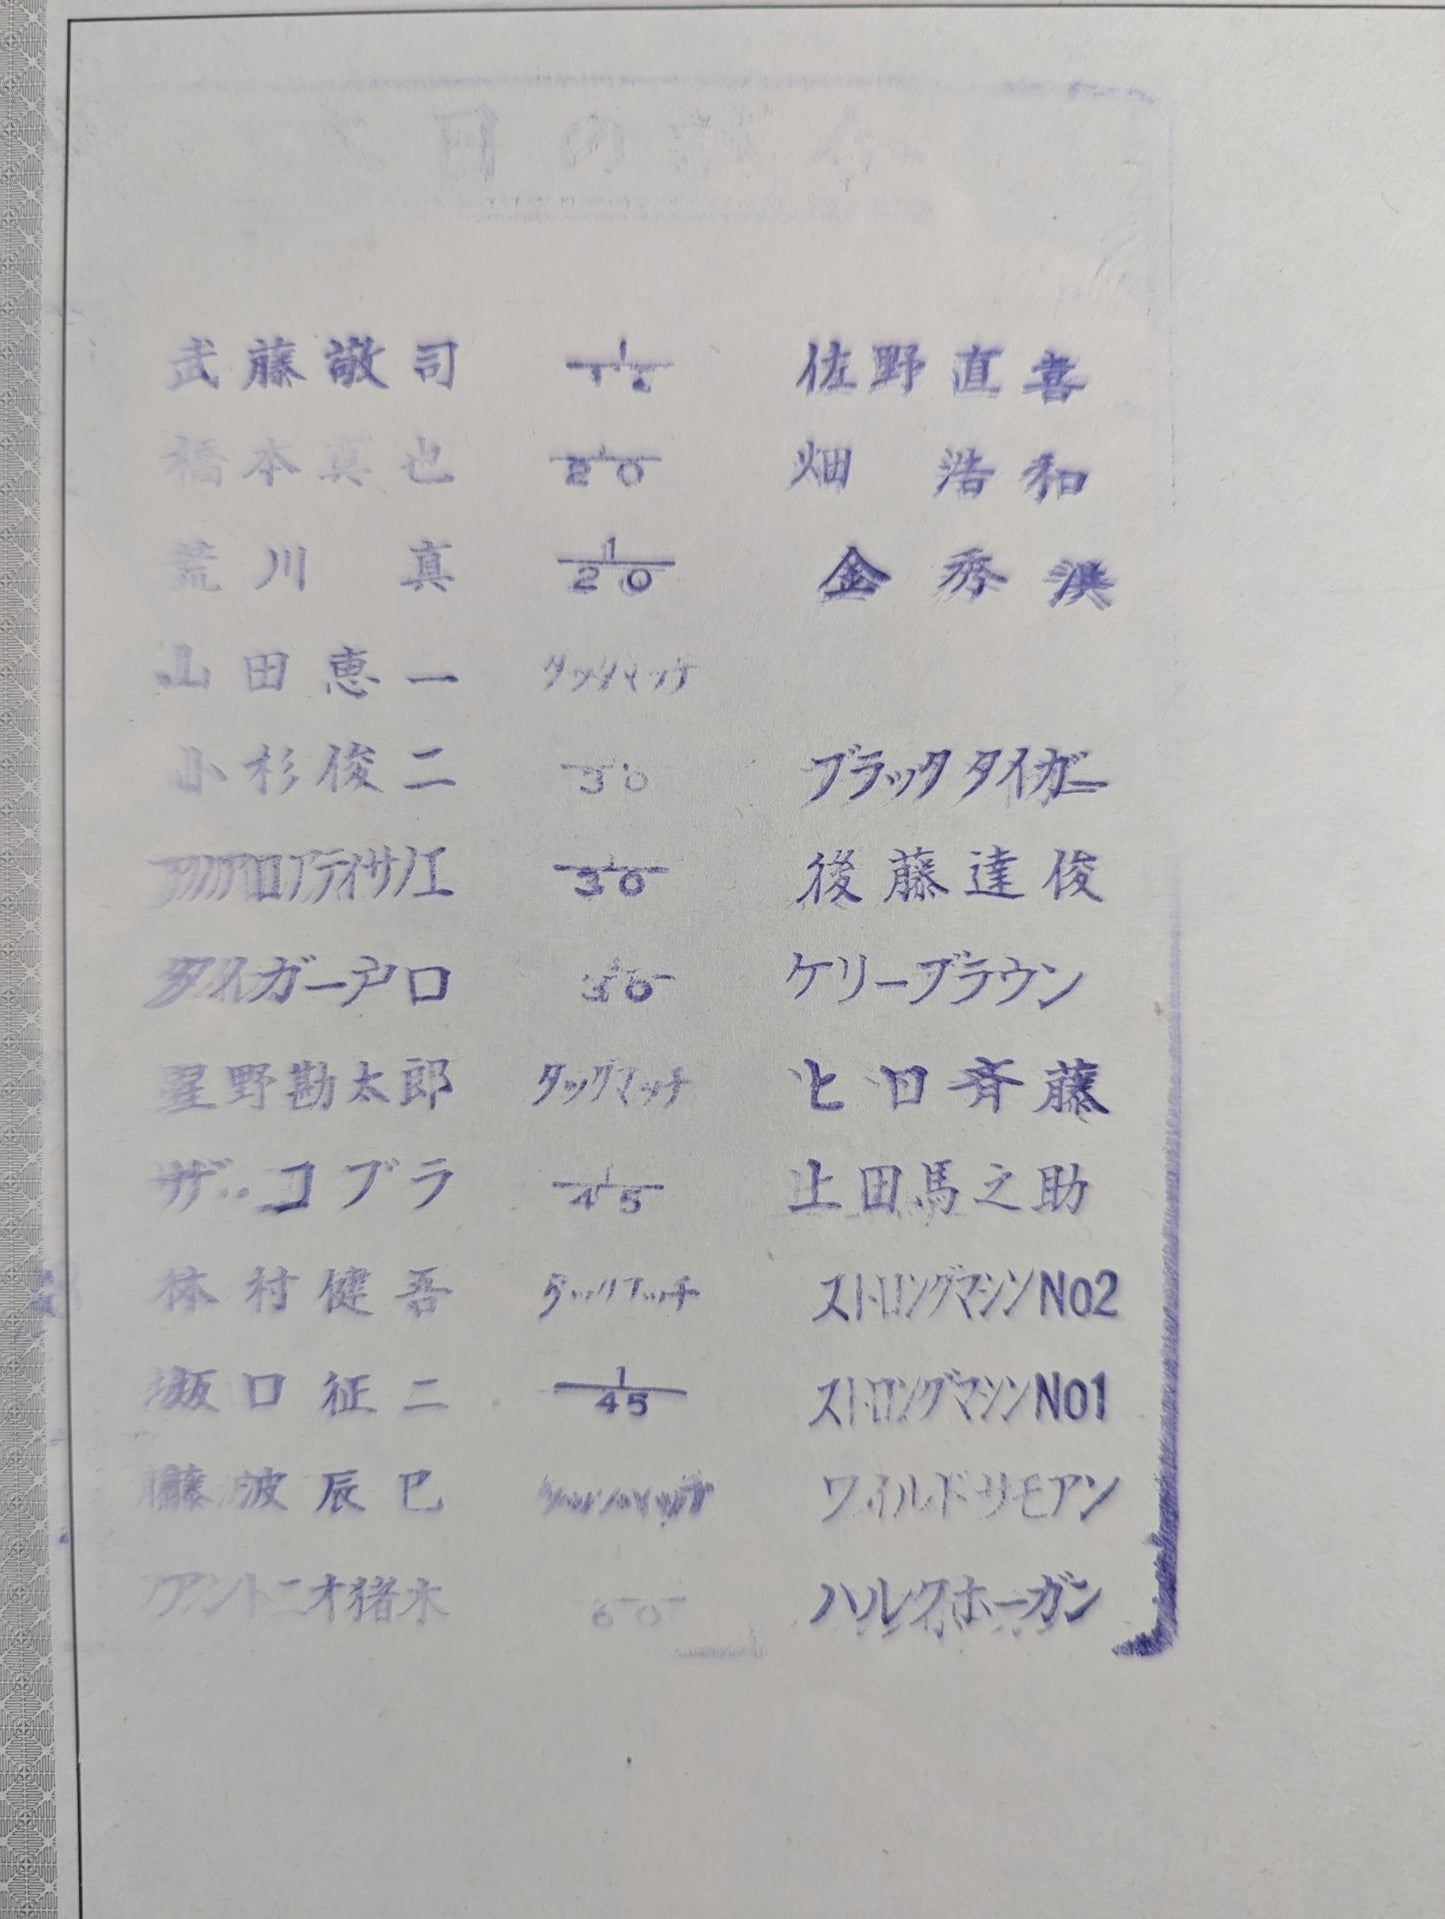 本日の試合
武藤敬司 1/15 佐野直喜
橋本真也 1/20 畑浩和
荒川真 1/20 金秀洪
山田恵一 タッグマッチ
小杉俊二 1/30 ブラックタイガー
後藤達俊
タイガー戸口 1/30 ケリーブラウン
星野勘太郎 タッグマッチ ヒロ斉藤
ザ・コブラ 1/45 上田馬之助
木村健吾 タッグマッチ ストロングマシンNo2
坂口征二 1/45 ストロングマシンNo1
藤波辰巳 ワイルドサモアン
アントニオ猪木 60 ハルクホーガン